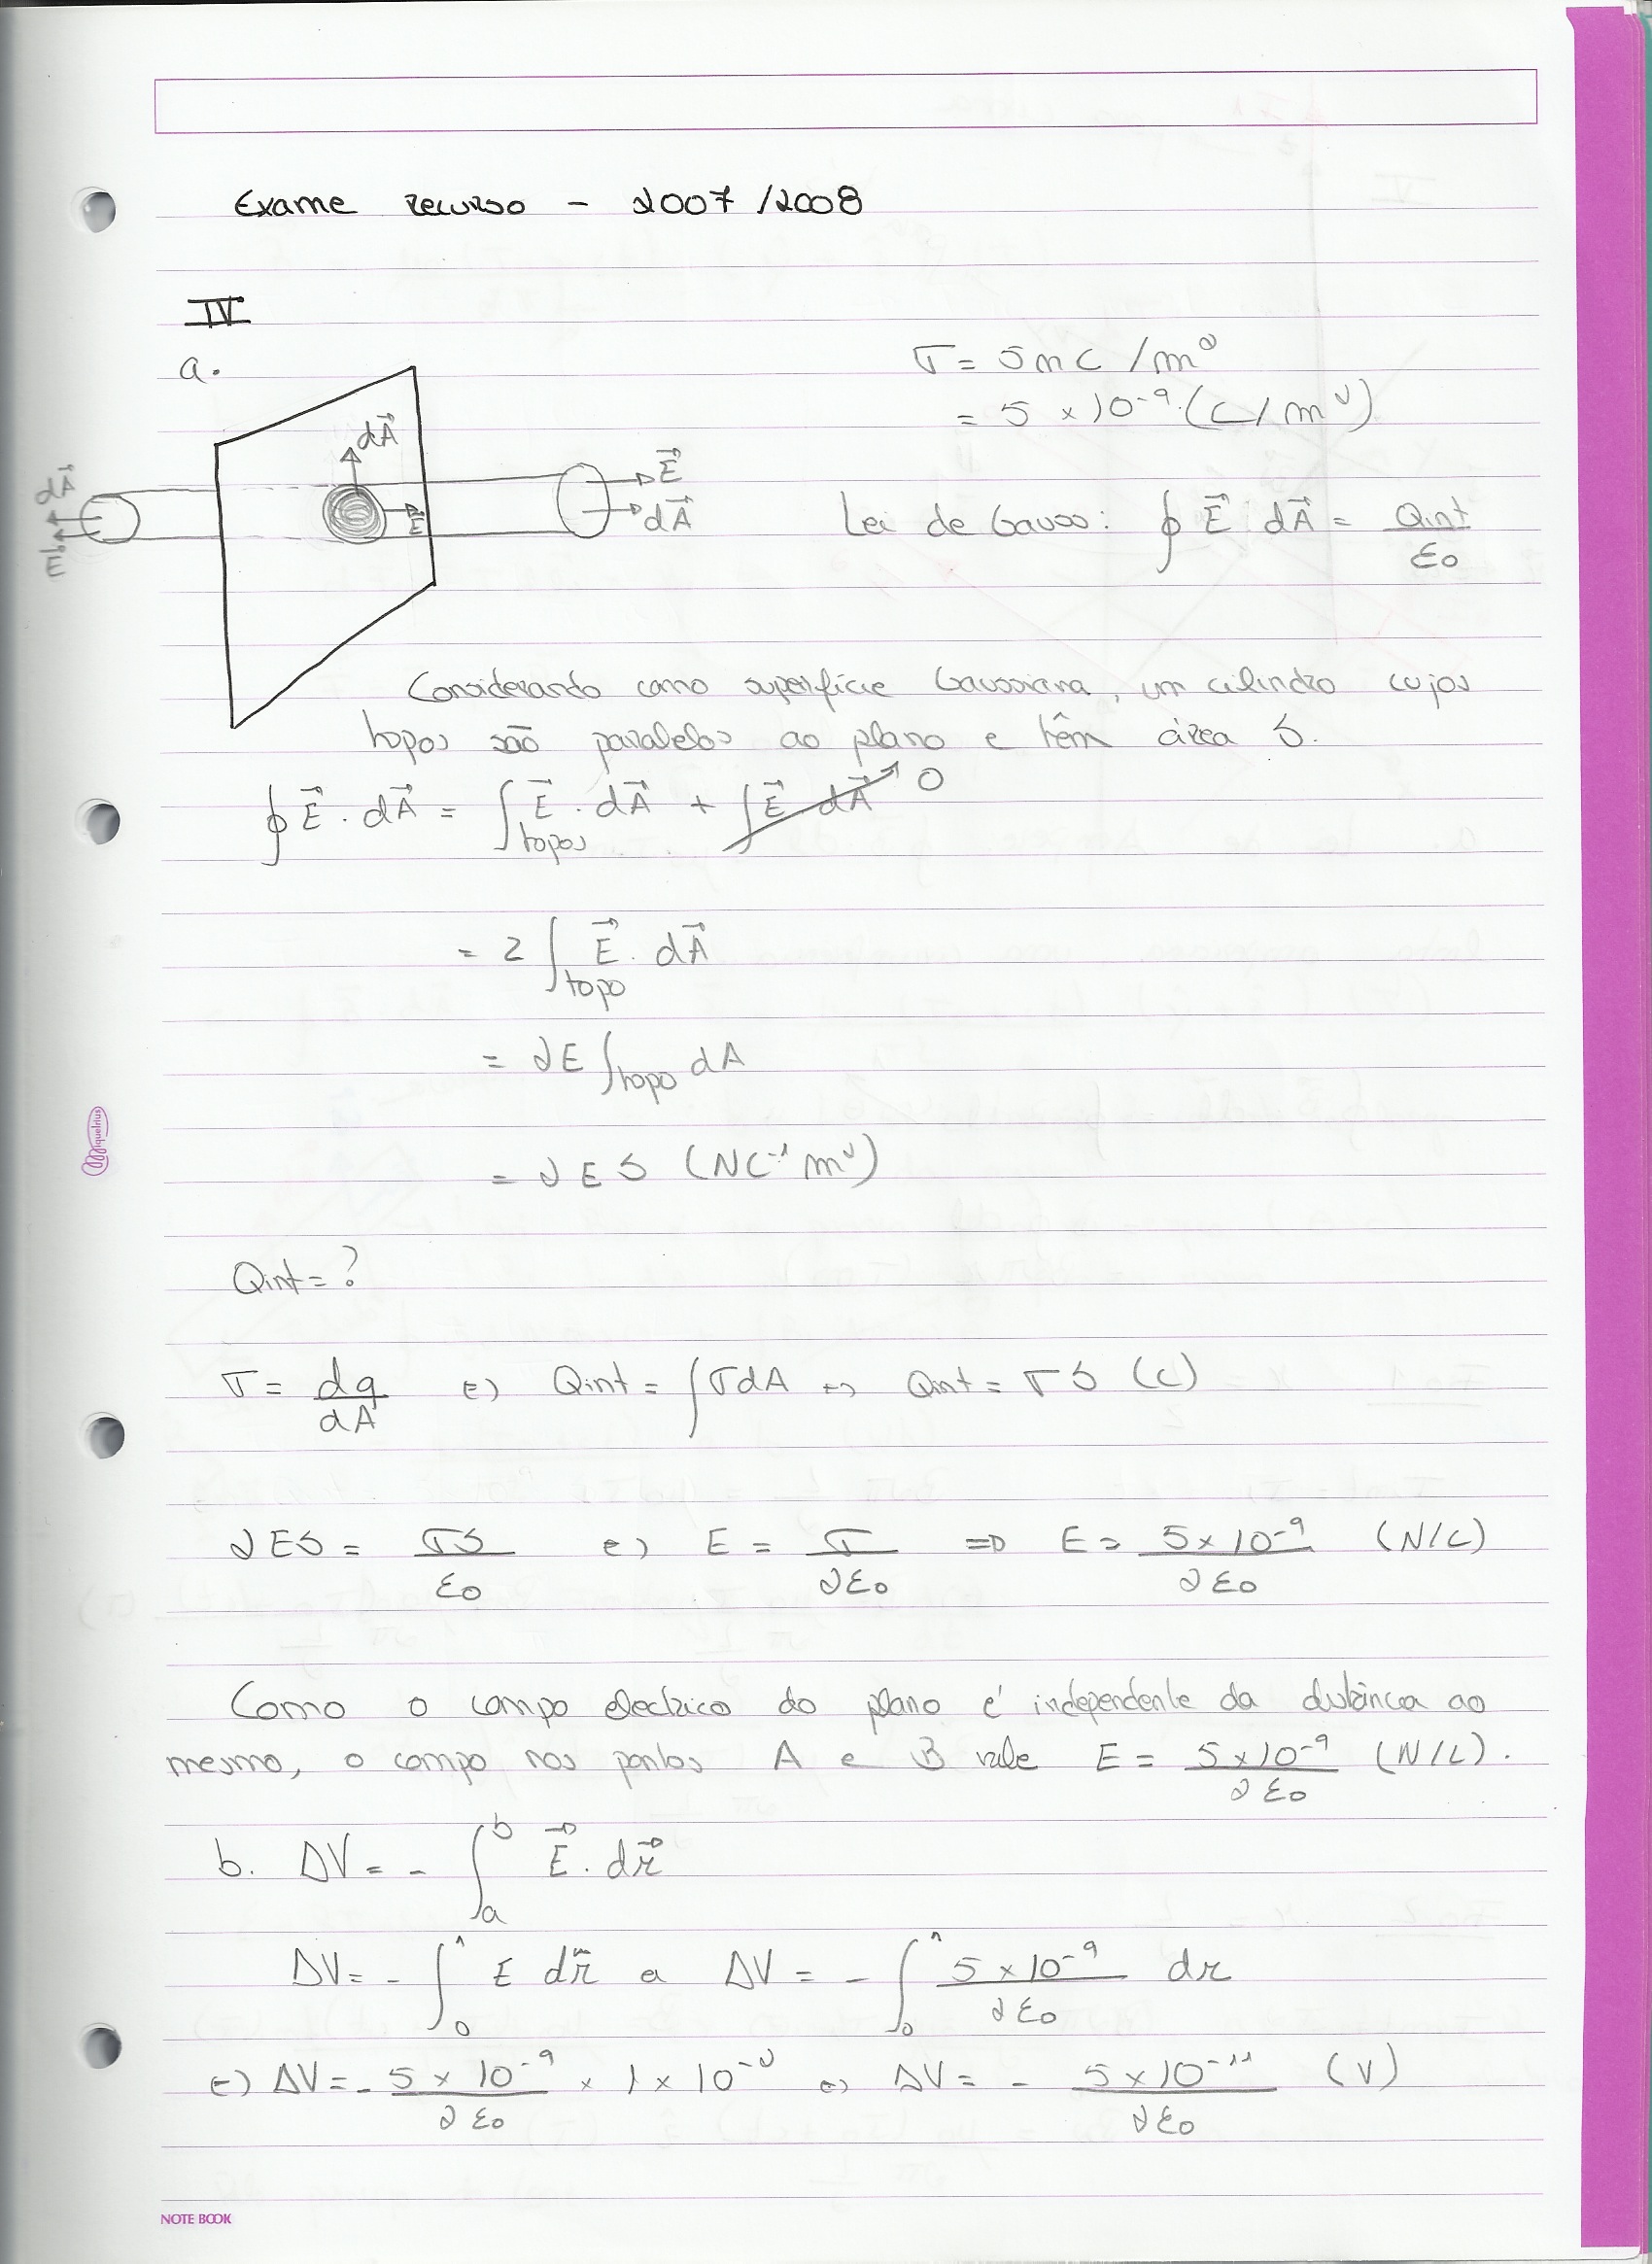 Exame recurso - 2007/2008
IV
a.
σ = 5nC/m²
= 5 × 10⁻⁹ (C/m²)
dA⃗
E⃗
dA⃗
E⃗
E⃗
dA⃗
Lei de Gauss: ∮ E⃗ dA⃗ = Qint/ε₀
Considerando como superfície Gaussiana, um cilindro cujos
topos são paralelos ao plano e têm área S.
∮ E⃗ . dA⃗ = ∫topos E⃗ . dA⃗ + ∫ E⃗ dA⃗ 0
= 2 ∫topo E⃗ . dA⃗
= 2E ∫topo dA
= 2ES (NC⁻¹m²)
Qint = ?
σ = dq/dA ⇔ Qint = ∫σdA ⇔ Qint = σS (C)
2ES = σS/ε₀ ⇔ E = σ/2ε₀ ⇒ E = 5×10⁻⁹/2ε₀ (N/C)
Como o campo electrico do plano é independente da distância ao
mesmo, o campo nos pontos A e B vale E = 5×10⁻⁹/2ε₀ (N/C).
b. ΔV = - ∫ₐᵇ E⃗ . dr⃗
ΔV = - ∫₀¹ E dr ⇔ ΔV = - ∫₀¹ 5×10⁻⁹/2ε₀ dr
⇔ ΔV = - 5×10⁻⁹/2ε₀ × 1×10⁻² ⇔ ΔV = - 5×10⁻¹¹/2ε₀ (V)
Miquelrius
NOTE BOOK